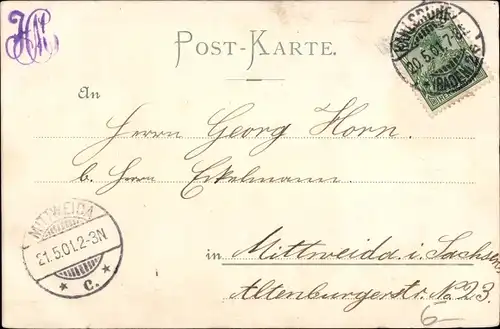 HK
POST-KARTE.
KARLSRUHE
20.5.01.7-8
(BADEN) 2
An
Herrn Georg Horn.
b. Herrn Eckelmann.
MITTWEIDA
21.5.01.2-3N
* c. *
in Mittweida i. Sachsen
Altenburgerstr. No. 23.
6